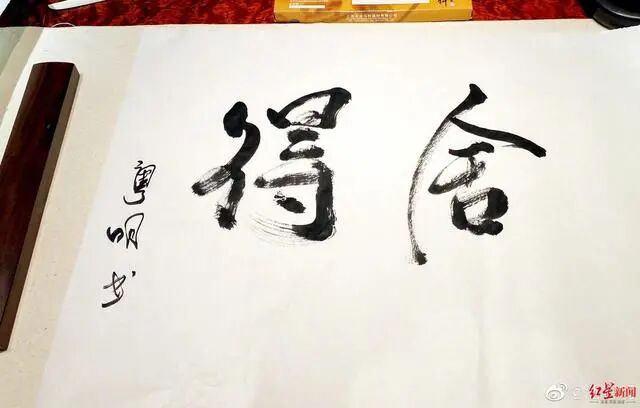 舍得
粤明书
红星新闻